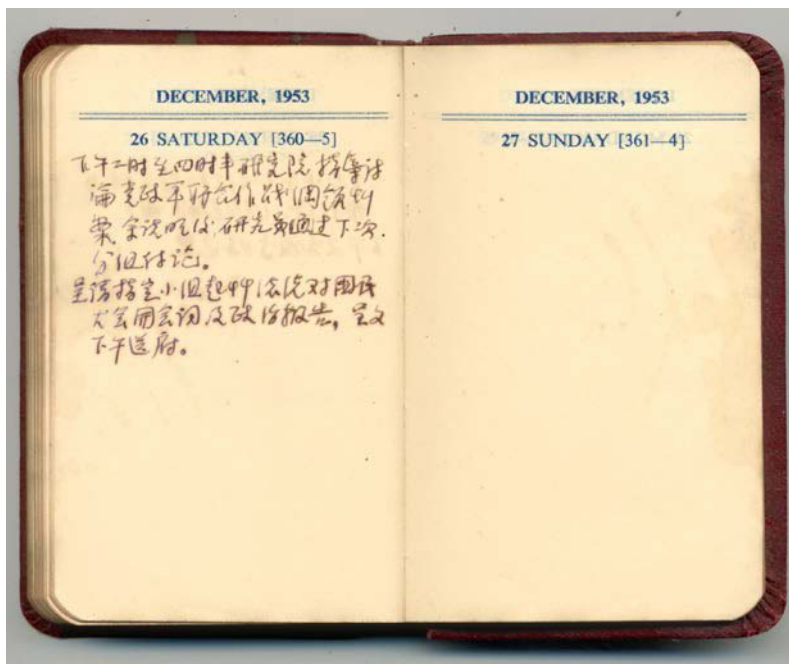 DECEMBER, 1953
26 SATURDAY [360—5]
下午二时至四时半研究院指导讨
論党政军联合作战纲领草
案余说明后研究员通过下次
分组讨论。
呈请指定小组起草总统对国民
大会开会词及政治报告，呈文
下午送府。
DECEMBER, 1953
27 SUNDAY [361—4]